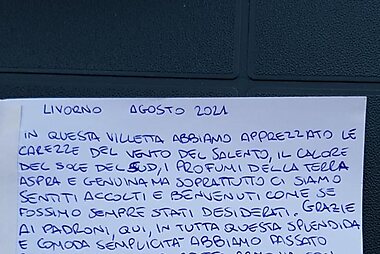 LIVORNO AGOSTO 2021
IN QUESTA VILLETTA ABBIAMO APPREZZATO LE
CAREZZE DEL VENTO DEL SALENTO, IL CALORE
DEL SOLE DEL SUD, I PROFUMI DELLA TERRA
ASPRA E GENUINA MA SOPRATTUTTO CI SIAMO
SENTITI ACCOLTI E BENVENUTI COME SE
FOSSIMO SEMPRE STATI DESIDERATI. GRAZIE
AI PADRONI, QUI, IN TUTTA QUESTA SPLENDIDA
E COMODA SEMPLICITÀ ABBIAMO PASSATO